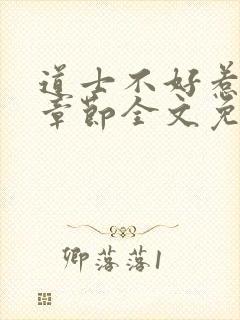 道士不好惹
章节全文免
卿落落1